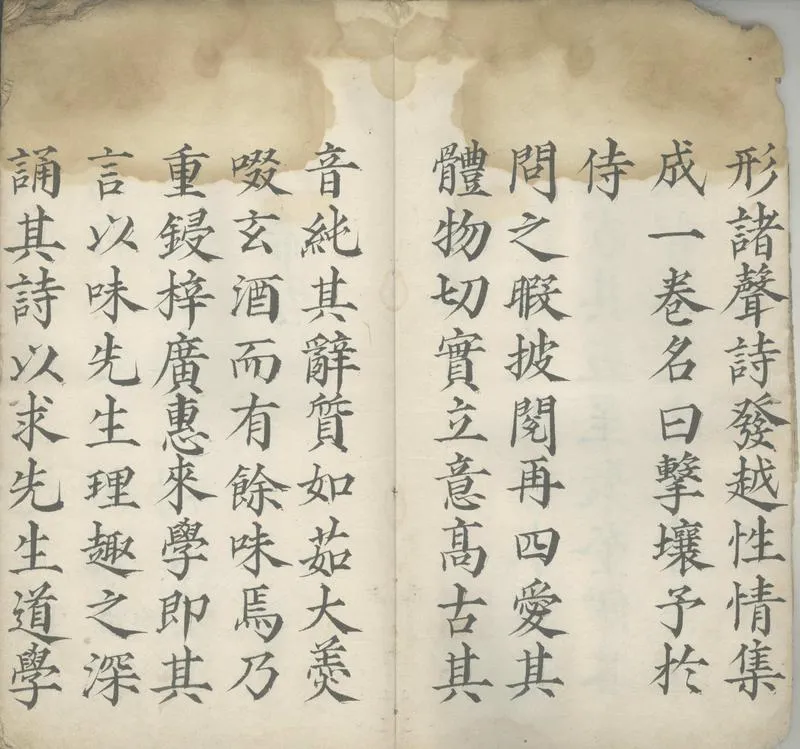 形諸聲詩發越性情集
成一卷名曰擊壤予於
侍
問之暇披閱再四愛其
體物切實立意高古其
音純其辭質如茹大羮
啜玄酒而有餘味焉乃
重鋟梓廣惠來學即其
言以味先生理趣之深
誦其詩以求先生道學